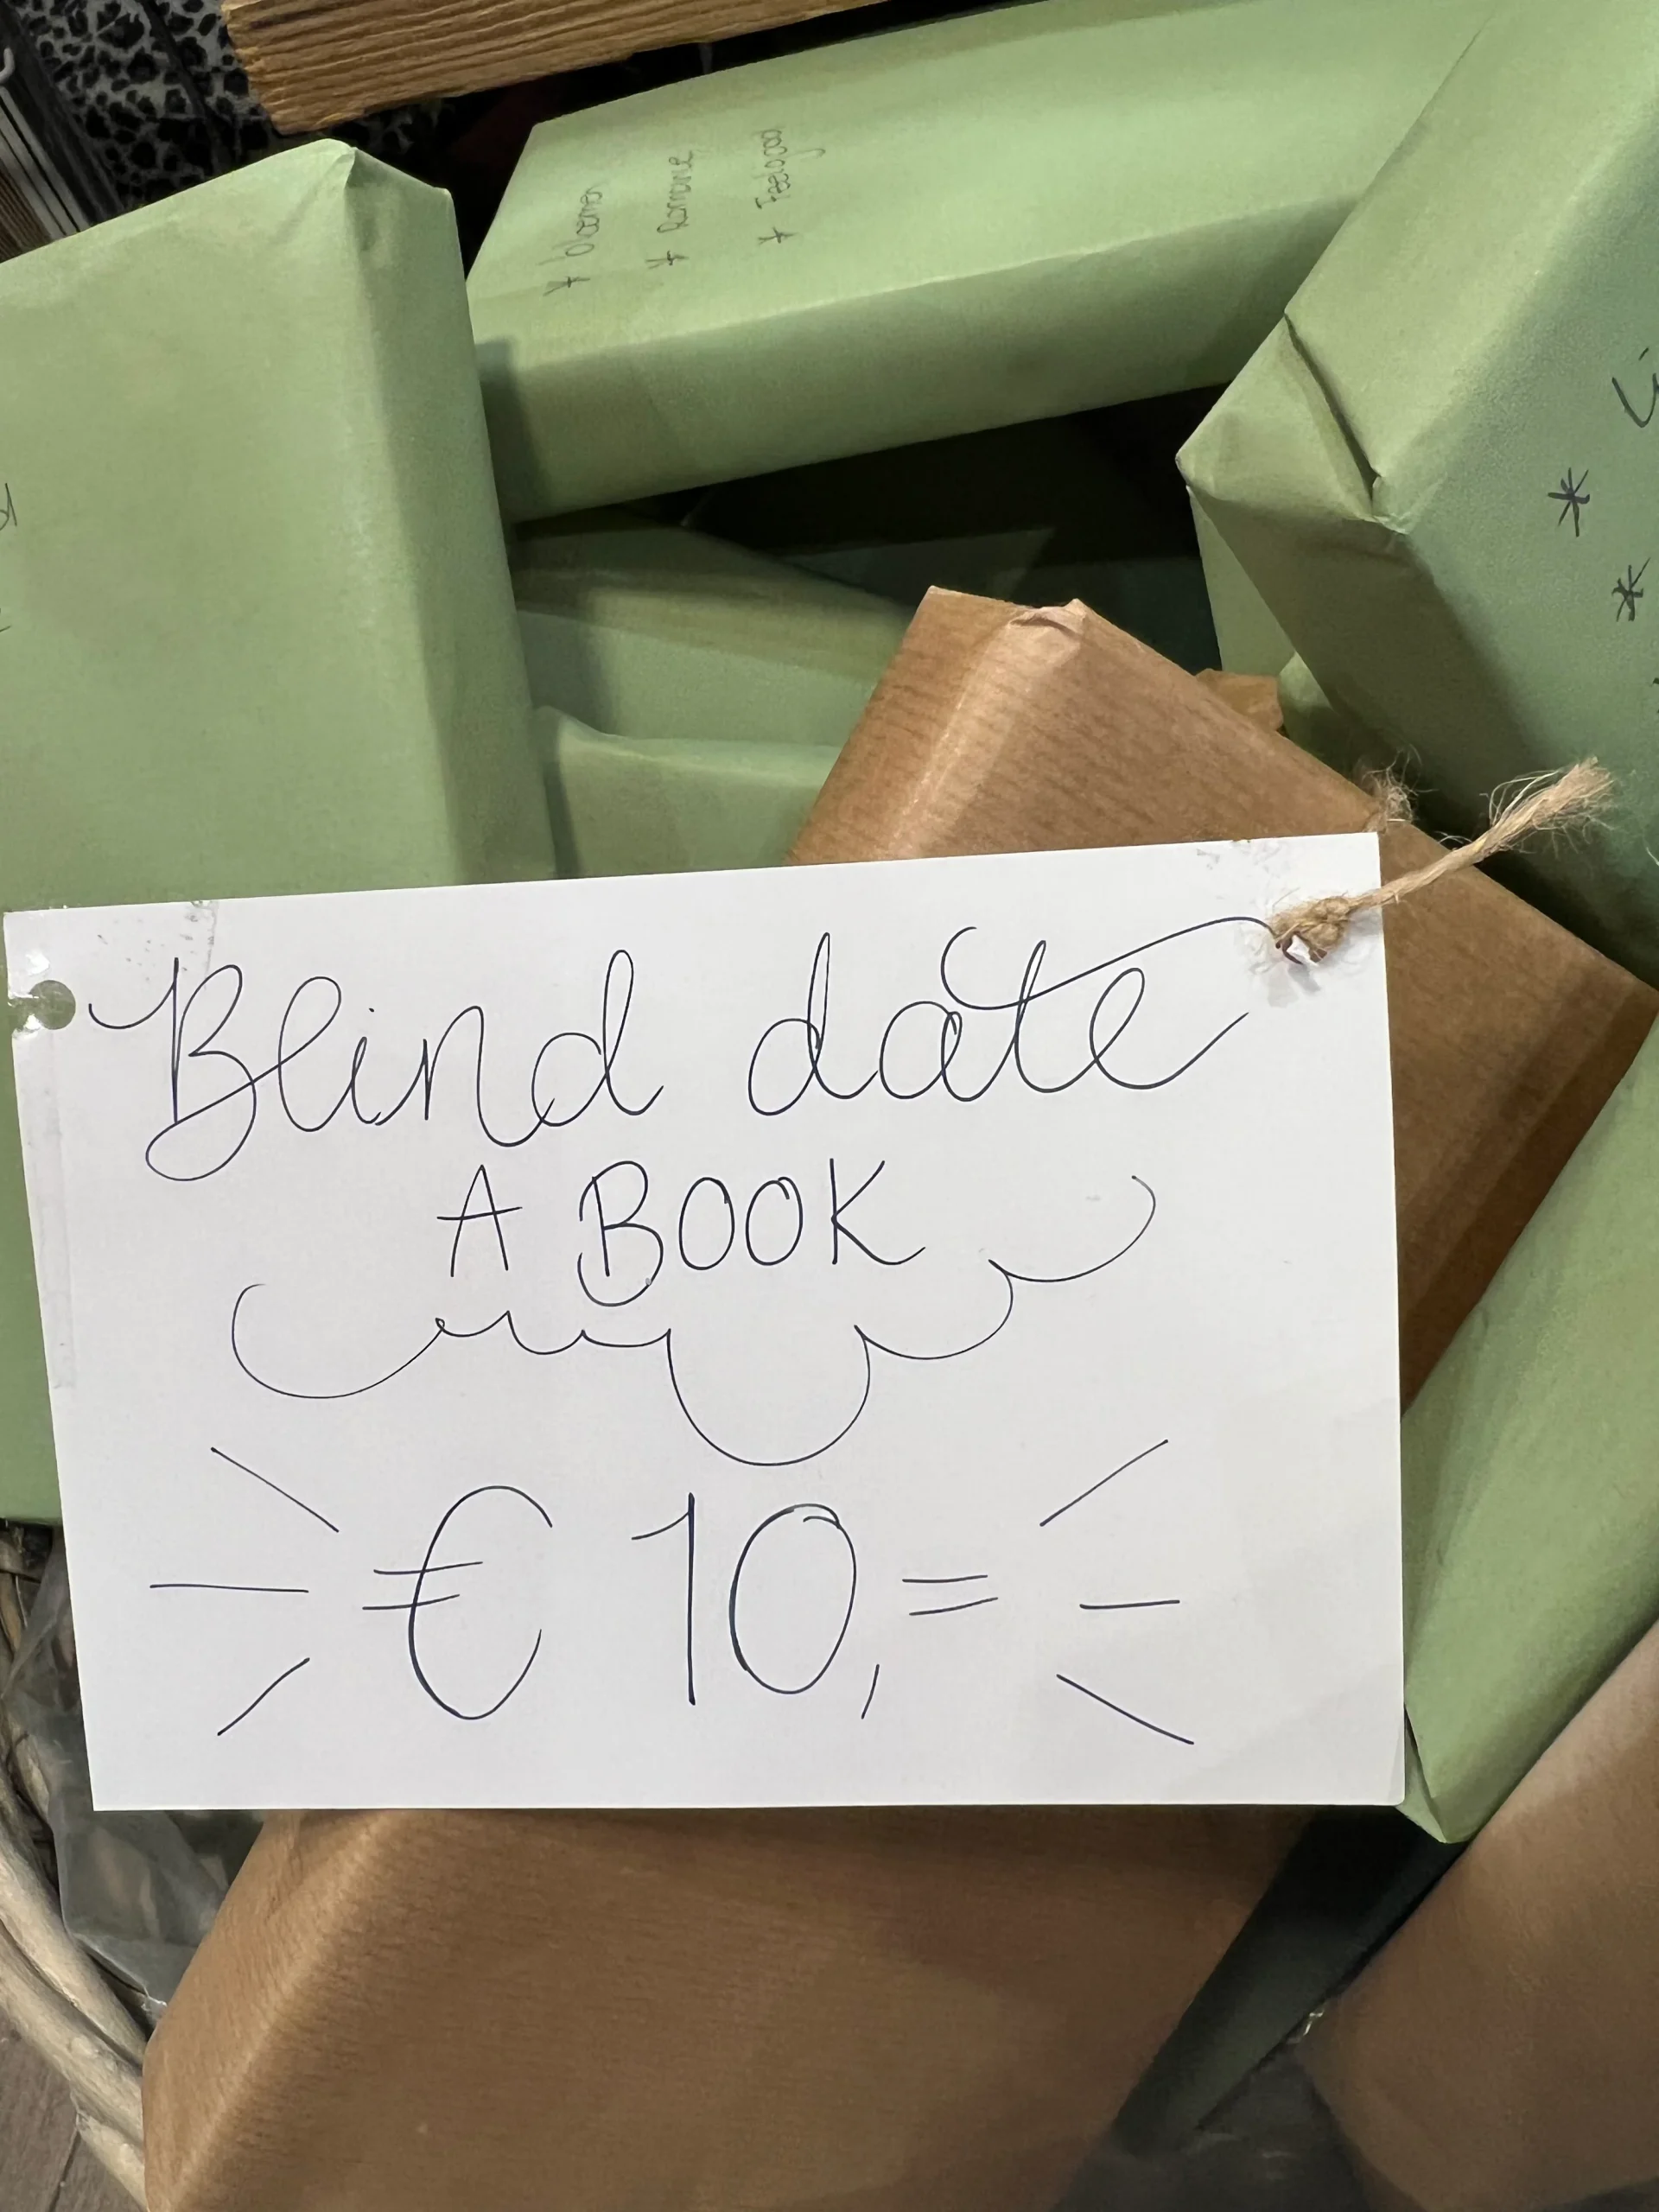 * bloemen
* Romance
* Feelgood
*
*
Blind date
A BOOK
€ 10,=